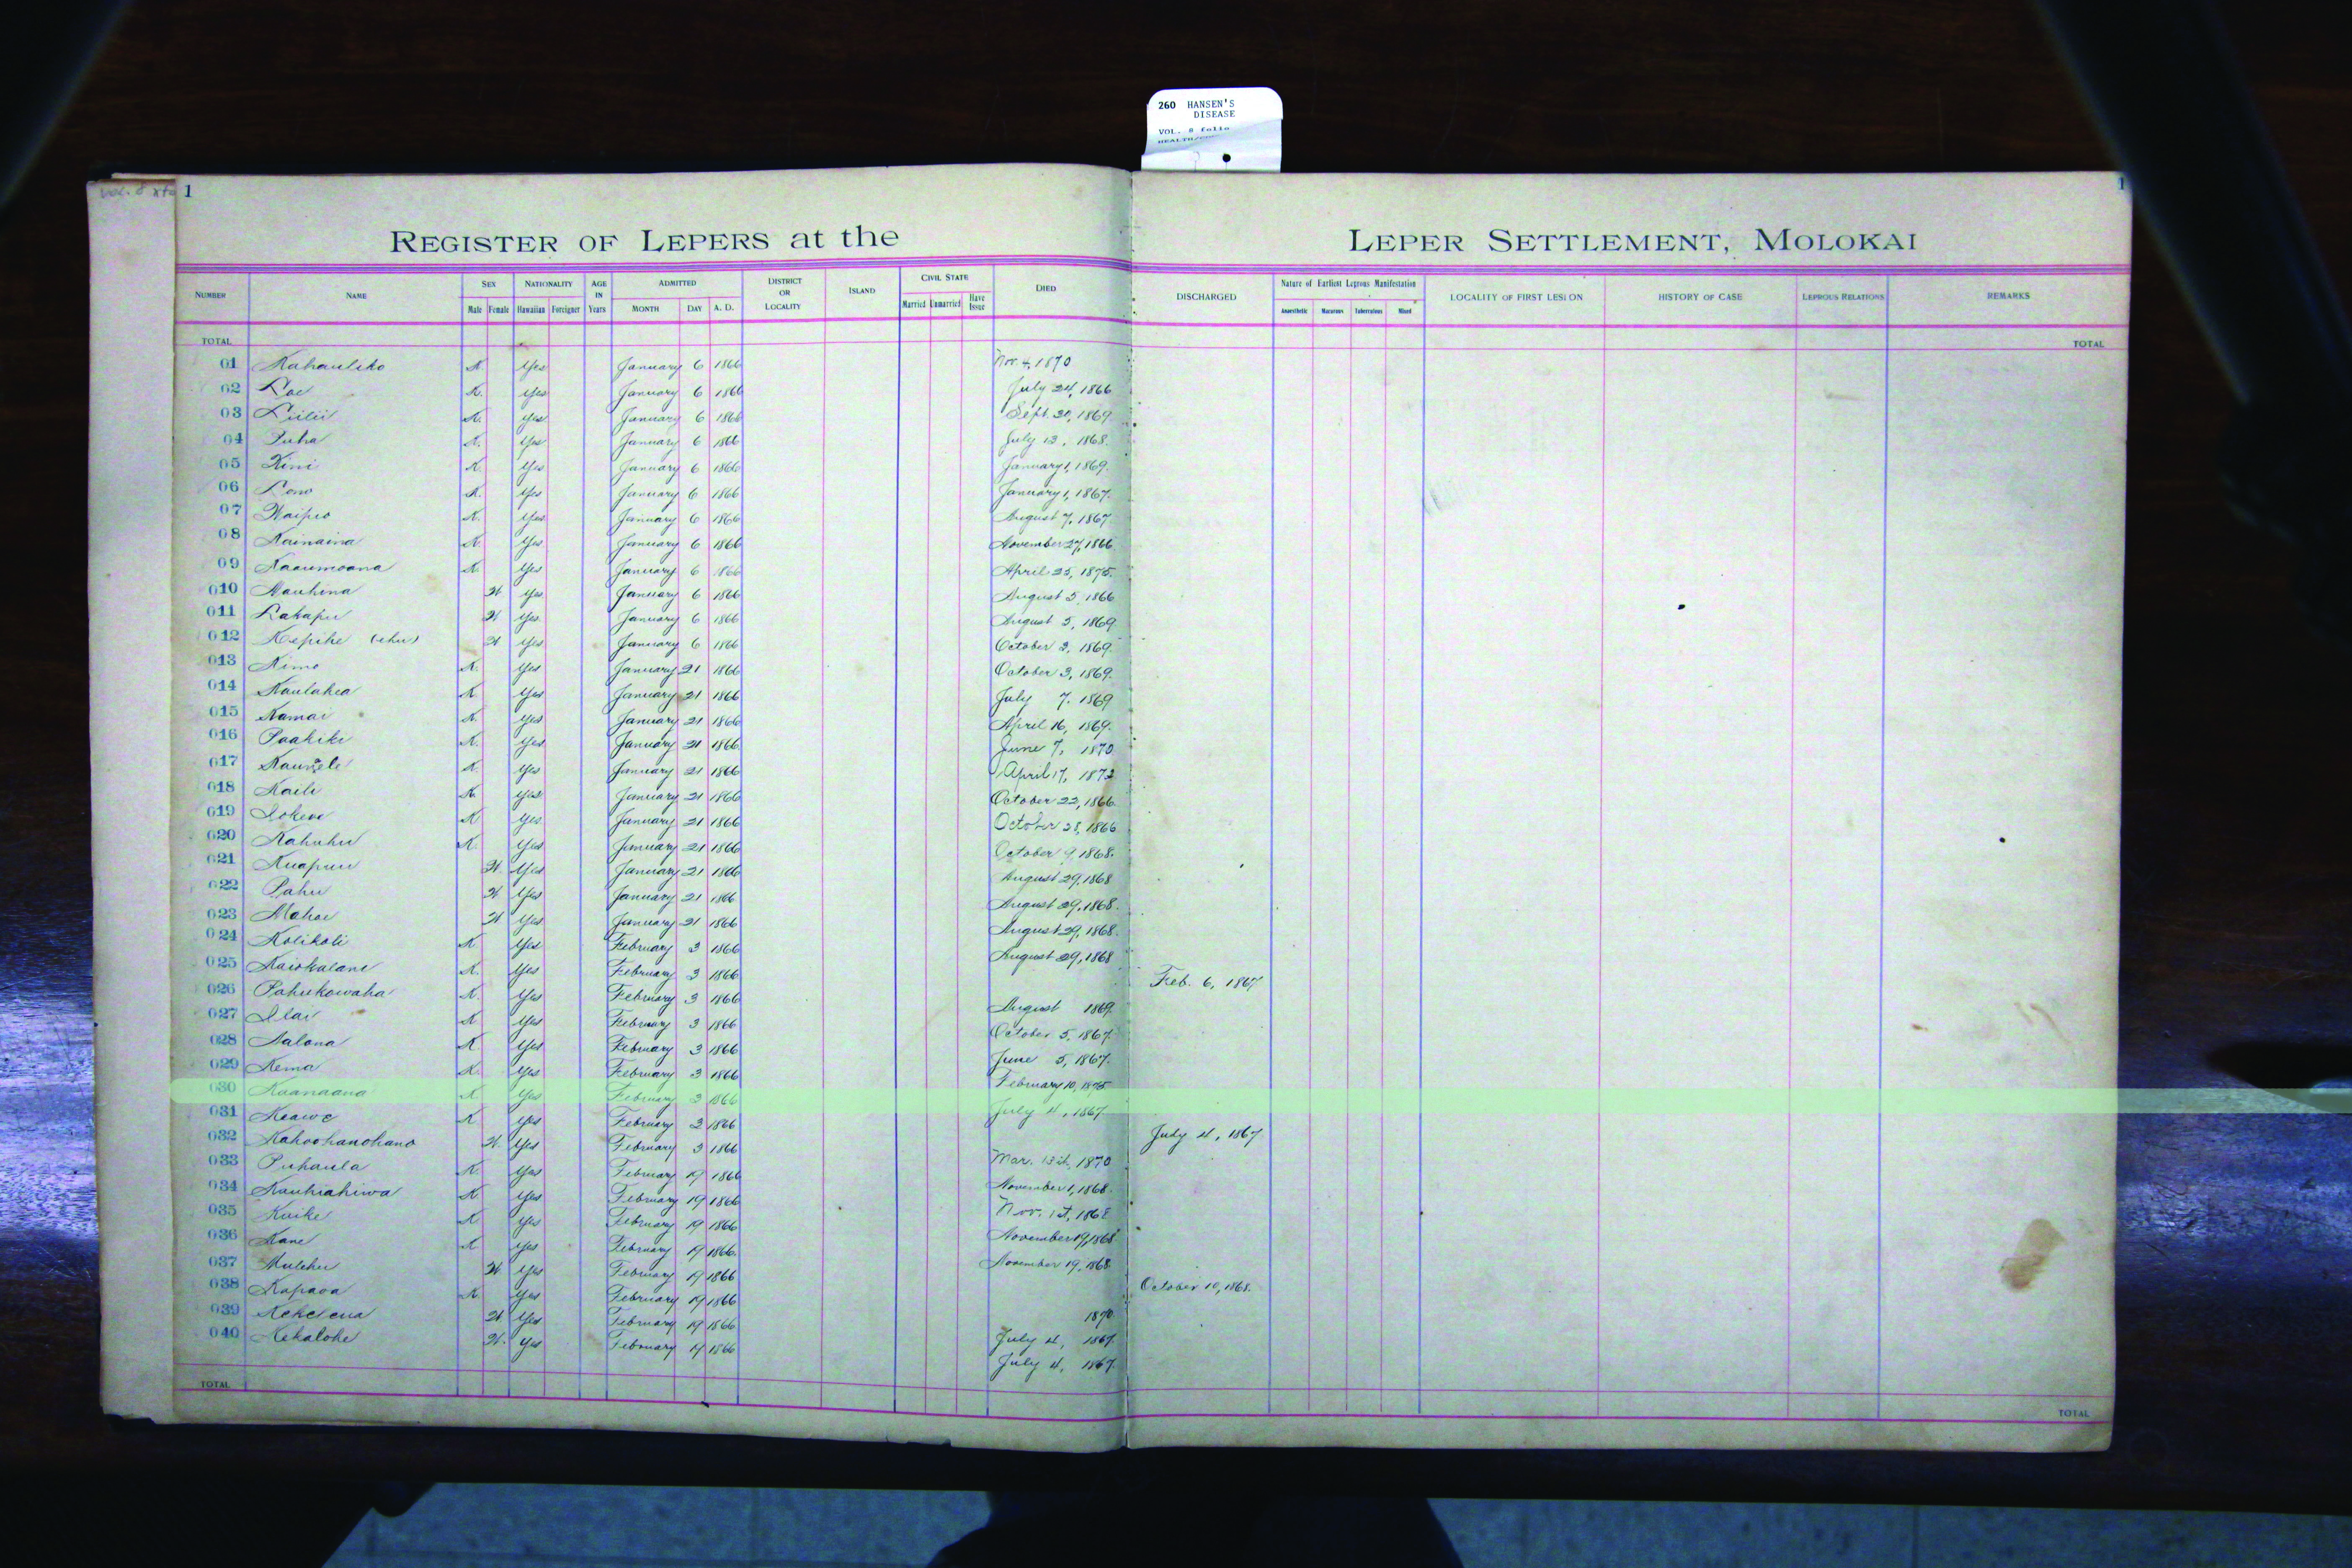 260 HANSEN'S
DISEASE
VOL. 8 folio
1
1
REGISTER OF LEPERS at the LEPER SETTLEMENT, MOLOKAI
NUMBER NAME SEX Male Female NATIONALITY Hawaiian Foreigner AGE IN Years ADMITTED MONTH DAY A. D. DISTRICT OR LOCALITY ISLAND CIVIL STATE Married Unmarried Have Issue DIED DISCHARGED Nature of Earliest Leprous Manifestation Anaesthetic Macurous Tuberculous Mixed LOCALITY OF FIRST LESION HISTORY OF CASE LEPROUS RELATIONS REMARKS
TOTAL TOTAL
01 Kahauliko K. Yes January 6 1866 Nov. 4, 1870
02 Loe K. Yes January 6 1866 July 24, 1866
03 Liilii K. Yes January 6 1866 Sept. 20, 1869
04 Puha K. Yes January 6 1866 July 13, 1868.
05 Kini K. Yes January 6 1866 January 1, 1869.
06 Lono K. Yes January 6 1866 January 1, 1867.
07 Waipio K. Yes January 6 1866 August 7, 1867
08 Kainaina K. Yes January 6 1866 November 27, 1866
09 Kaaumoana K. Yes January 6 1866 April 25, 1875.
010 Nauhina W Yes January 6 1866 August 5, 1866
011 Lakapu W Yes January 6 1866 August 5, 1869
012 Kepihe (ehu) W Yes January 6 1866 October 3, 1869.
013 Kimo K. Yes January 21 1866 October 3, 1869.
014 Kaulahea K. Yes January 21 1866 July 7, 1869
015 Kamai K. Yes January 21 1866 April 16, 1869.
016 Paakiki K. Yes January 21 1866 June 7, 1870
017 K. Yes January 21 1866 April 17, 1872
018 Kaili K. Yes January 21 1866 October 22, 1866.
019 Iokewe K. Yes January 21 1866 October 28, 1866
020 Kahuhu K. Yes January 21 1866 October 9, 1868.
021 Kuapuu W. Yes January 21 1866 August 29, 1868
022 Pahu W Yes January 21 1866 August 29, 1868.
023 Mahoe W Yes January 21 1866 August 29, 1868.
024 Kolikoli K Yes February 3 1866 August 29, 1868
025 Kaiokalani K. Yes February 3 1866 Feb. 6, 1867
026 Pahukowaha K. Yes February 3 1866 August 1869
027 Ilai K Yes February 3 1866 October 5, 1867
028 Aalona K Yes February 3 1866 June 5, 1867.
029 Kema K. Yes February 3 1866 February 10, 1875
030 Kaanaana K Yes February 3 1866 July 4, 1867
031 Keawe K Yes February 3 1866 July 4, 1867
032 Kahoohanohano W. Yes February 3 1866 Mar. 13th, 1870
033 Puhaula K. Yes February 19 1866 November 1, 1868.
034 Kauhiahiwa K Yes February 19 1866 Nov. 1st, 1868
035 Kuike K Yes February 19 1866 November 19, 1868
036 Kane K Yes February 19 1866 November 19, 1868
037 W Yes February 19 1866 October 10, 1868.
038 Kapaoa K. Yes February 19 1866 1870
039 Kekelena W Yes February 19 1866 July 4, 1867.
040 Kekalohe W. Yes February 19 1866 July 4, 1867.
TOTAL TOTAL